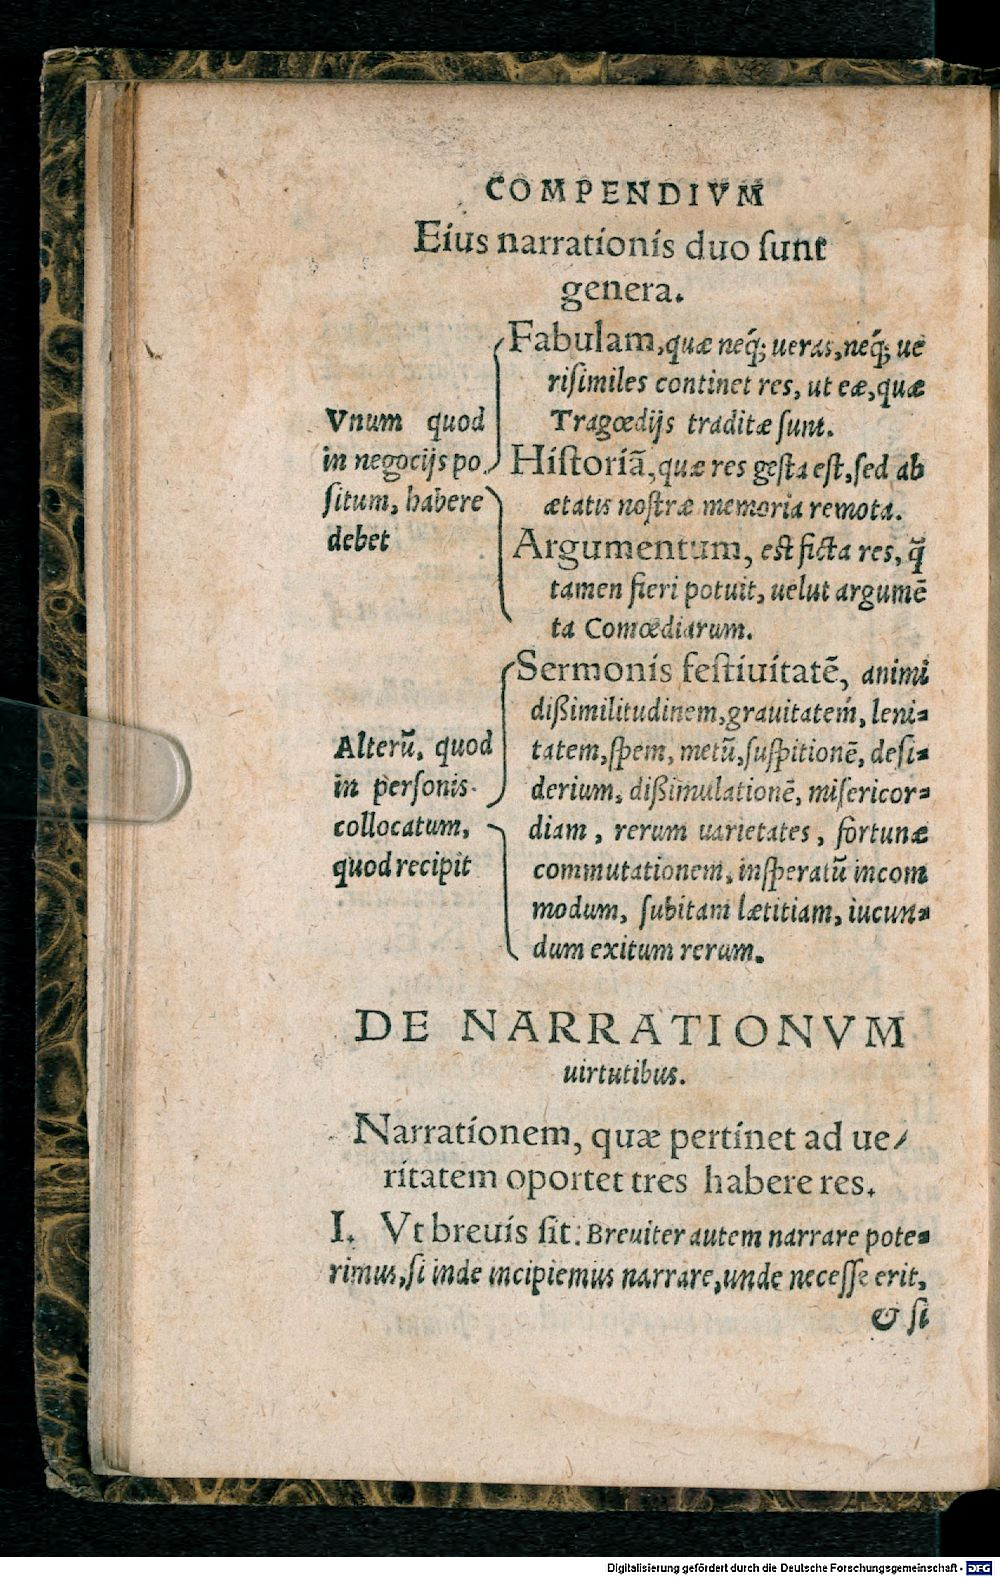 COMPENDIVM
Eius narrationis duo ſunt
genera.
Vnum quod
in negocijs po
ſitum, habere
debet
Fabulam, quæ neq́; ueras, neq́; ue
riſimiles continet res, ut eæ, quæ
Tragœdijs traditæ ſunt.
Hiſtoriā, quæ res geſta eſt, ſed ab
ætatis noſtræ memoria remota.
Argumentum, eſt ficta res, q̄
tamen fieri potuit, uelut argumē
ta Comœdiarum.
Alterū, quod
in perſonis
collocatum,
quod recipit
Sermonis feſtiuitatē, animi
dißimilitudinem, grauitatem, leni-
tatem, ſpem, metū, ſuſpitionē, deſi-
derium, dißimulationē, miſericor-
diam, rerum uarietates, fortunæ
commutationem, inſperatū incom
modum, ſubitam lætitiam, iucun-
dum exitum rerum.
DE NARRATIONVM
uirtutibus.
Narrationem, quæ pertinet ad ue-
ritatem oportet tres habere res.
I. Vt breuis ſit: Breuiter autem narrare pote-
rimus, ſi inde incipiemus narrare, unde neceſſe erit,
& ſi
Digitalisierung gefördert durch die Deutsche Forschungsgemeinschaft - DFG